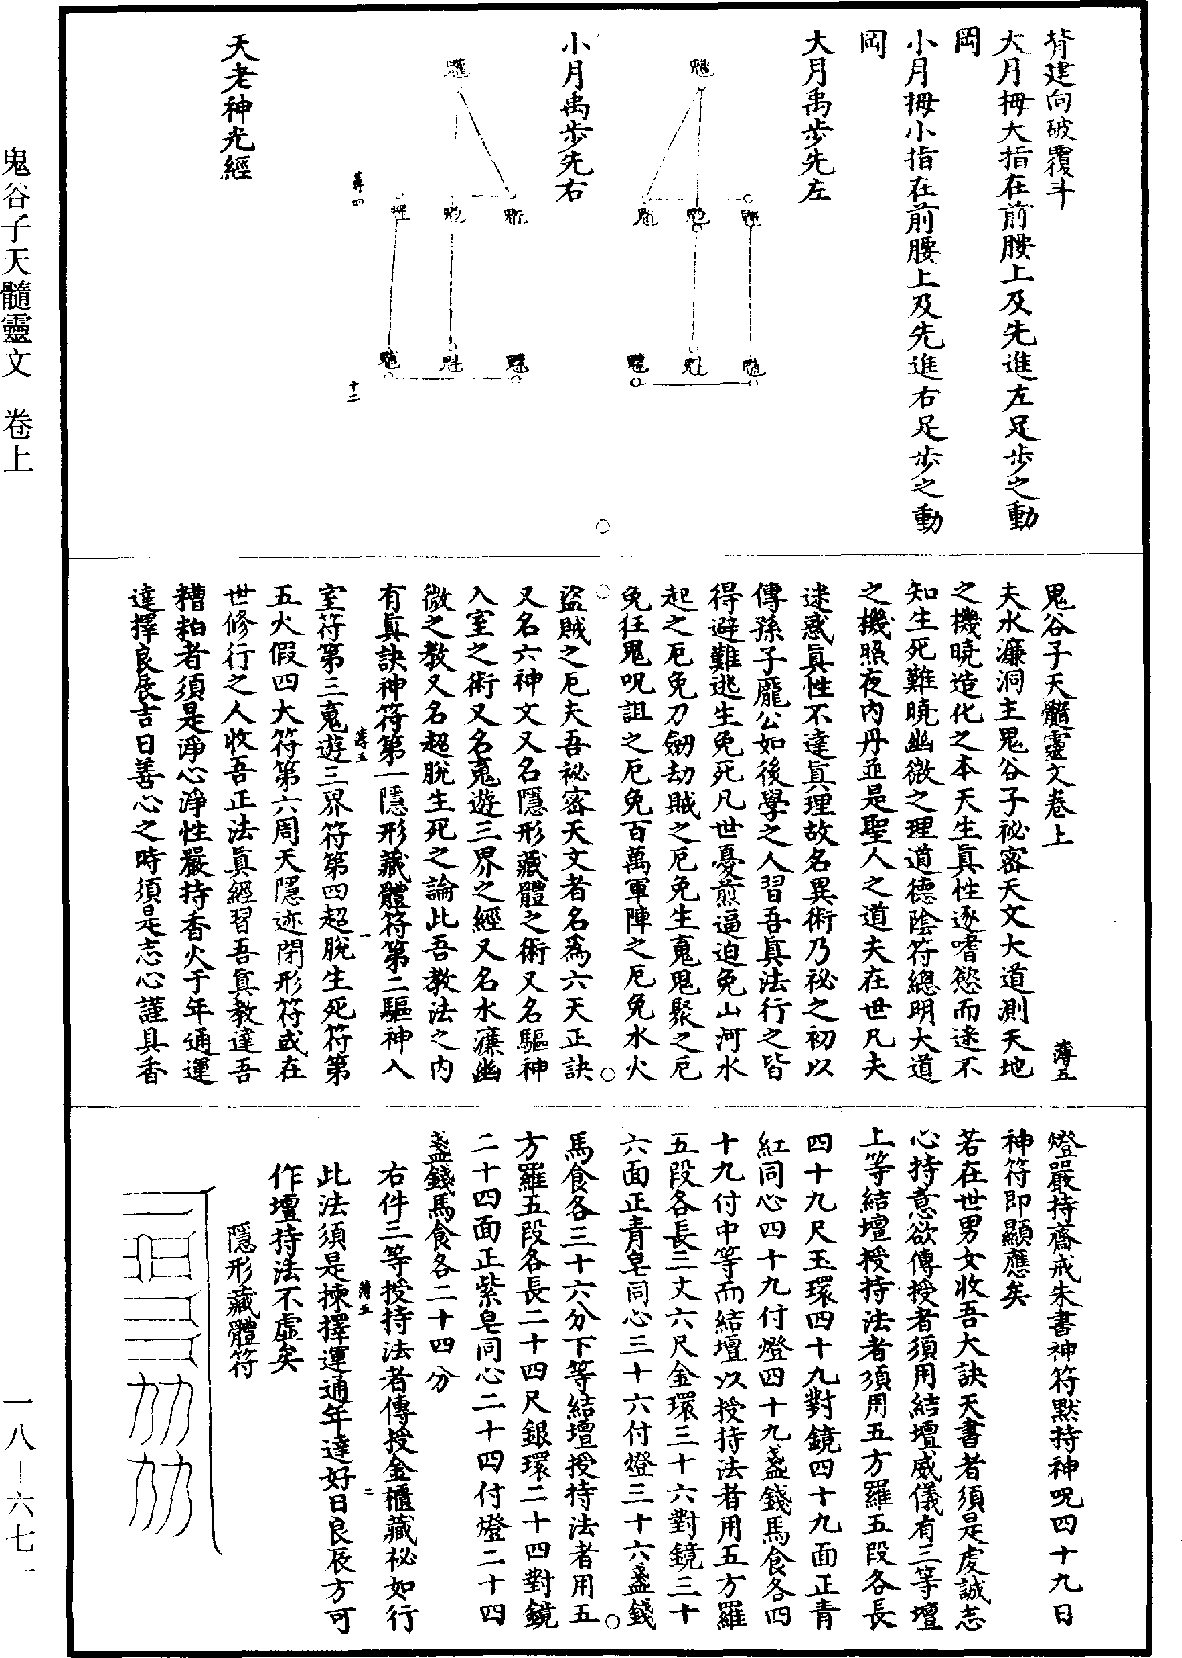 背建向破覆斗
大月拇大指在前腰上及先進左足步之動
岡
小月拇小指在前腰上及先進右足步之動
岡
大月禹步先左
小月禹步先右
薄四
十二
天老神光經
鬼谷子天髓靈文卷上
薄五
夫水濂洞主鬼谷子祕密天文大道測天地
之機曉造化之本天生眞性逐嗜慾而迷不
知生死難曉幽微之理道德陰符總明大道
之機照夜內丹並是聖人之道夫在世凡夫
迷惑眞性不達眞理故名異術乃祕之初以
傳孫子龐公如後學之人習吾眞法行之皆
得避難逃生免死凡世憂煎逼迫免山河水
起之厄免刀劒劫賊之厄免生䰟鬼聚之厄
免狂鬼呪詛之厄免百萬軍陣之厄免水火
盜賊之厄夫吾祕密天文者名爲六天正訣
又名六神文又名隱形藏體之術又名驅神
入室之術又名䰟遊三界之經又名水濂幽
微之教又名超脫生死之論此吾教法之内
有眞訣神符第一隱形藏體符第二驅神入
薄五
一
室符第三䰟遊三界符第四超脫生死符第
五火假四大符第六周天隱迹閉形符或在
世修行之人收吾正法眞經習吾眞教達吾
糟粕者須是淨心淨性嚴持香火于年通運
達擇良辰吉日善心之時須是志心謹具香
燈嚴持齋戒朱書神符默持神呪四十九日
神符即顯應矣
若在世男女收吾大訣天書者須是虔誠志
心持意欲傳授者須用結壇威儀有三等壇
上等結壇授持法者須用五方羅五段各長
四十九尺玉環四十九對鏡四十九面正青
紅同心四十九付燈四十九盞錢馬食各四
十九付中等而結壇以授持法者用五方羅
五段各長三丈六尺金環三十六對鏡三十
六面正青皂同心三十六付燈三十六盞錢
馬食各三十六分下等結壇授持法者用五
方羅五段各長二十四尺銀環二十四對鏡
二十四面正紫皂同心二十四付燈二十四
盞錢馬食各二十四分
右件三等授持法者傳授金櫃藏祕如行
薄五
二
此法須是揀擇運通年達好日良辰方可
作壇持法不虛矣
隱形藏體符
鬼谷子天髓靈文 卷上
一八—六七一